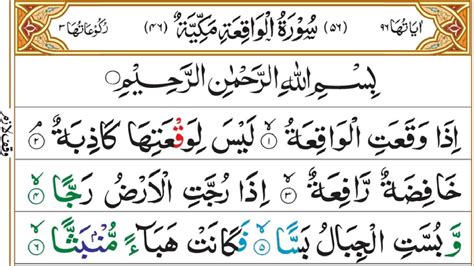 اٰیَاتُهَا ٩٦ (٥٦) سُوْرَةُ الْوَاقِعَةِ مَكِّيَّةٌ (٤٦) رُكُوْعَاتُهَا ٣
بِسْمِ اللهِ الرَّحْمٰنِ الرَّحِيْمِ
اِذَا وَقَعَتِ الْوَاقِعَةُ ۙ‏ ١ لَيْسَ لِوَقْعَتِهَا كَاذِبَةٌ ۘ ٢ وقف لازم
خَافِضَةٌ رَّافِعَةٌ ۙ ٣ اِذَا رُجَّتِ الْاَرْضُ رَجًّا ۙ ٤
وَّ بُسَّتِ الْجِبَالُ بَسًّا ۙ ٥ فَكَانَتْ هَبَآءً مُّنْۢبَثًّا ۙ ٦